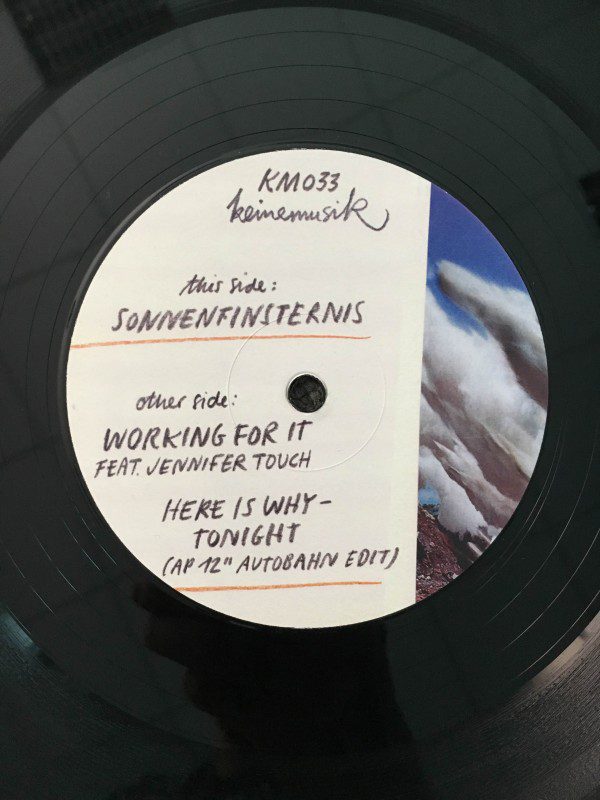 KM033
keinemusik
this side:
SONNENFINSTERNIS
other side:
WORKING FOR IT
FEAT. JENNIFER TOUCH
HERE IS WHY-
TONIGHT
(AP 12" AUTOBAHN EDIT)